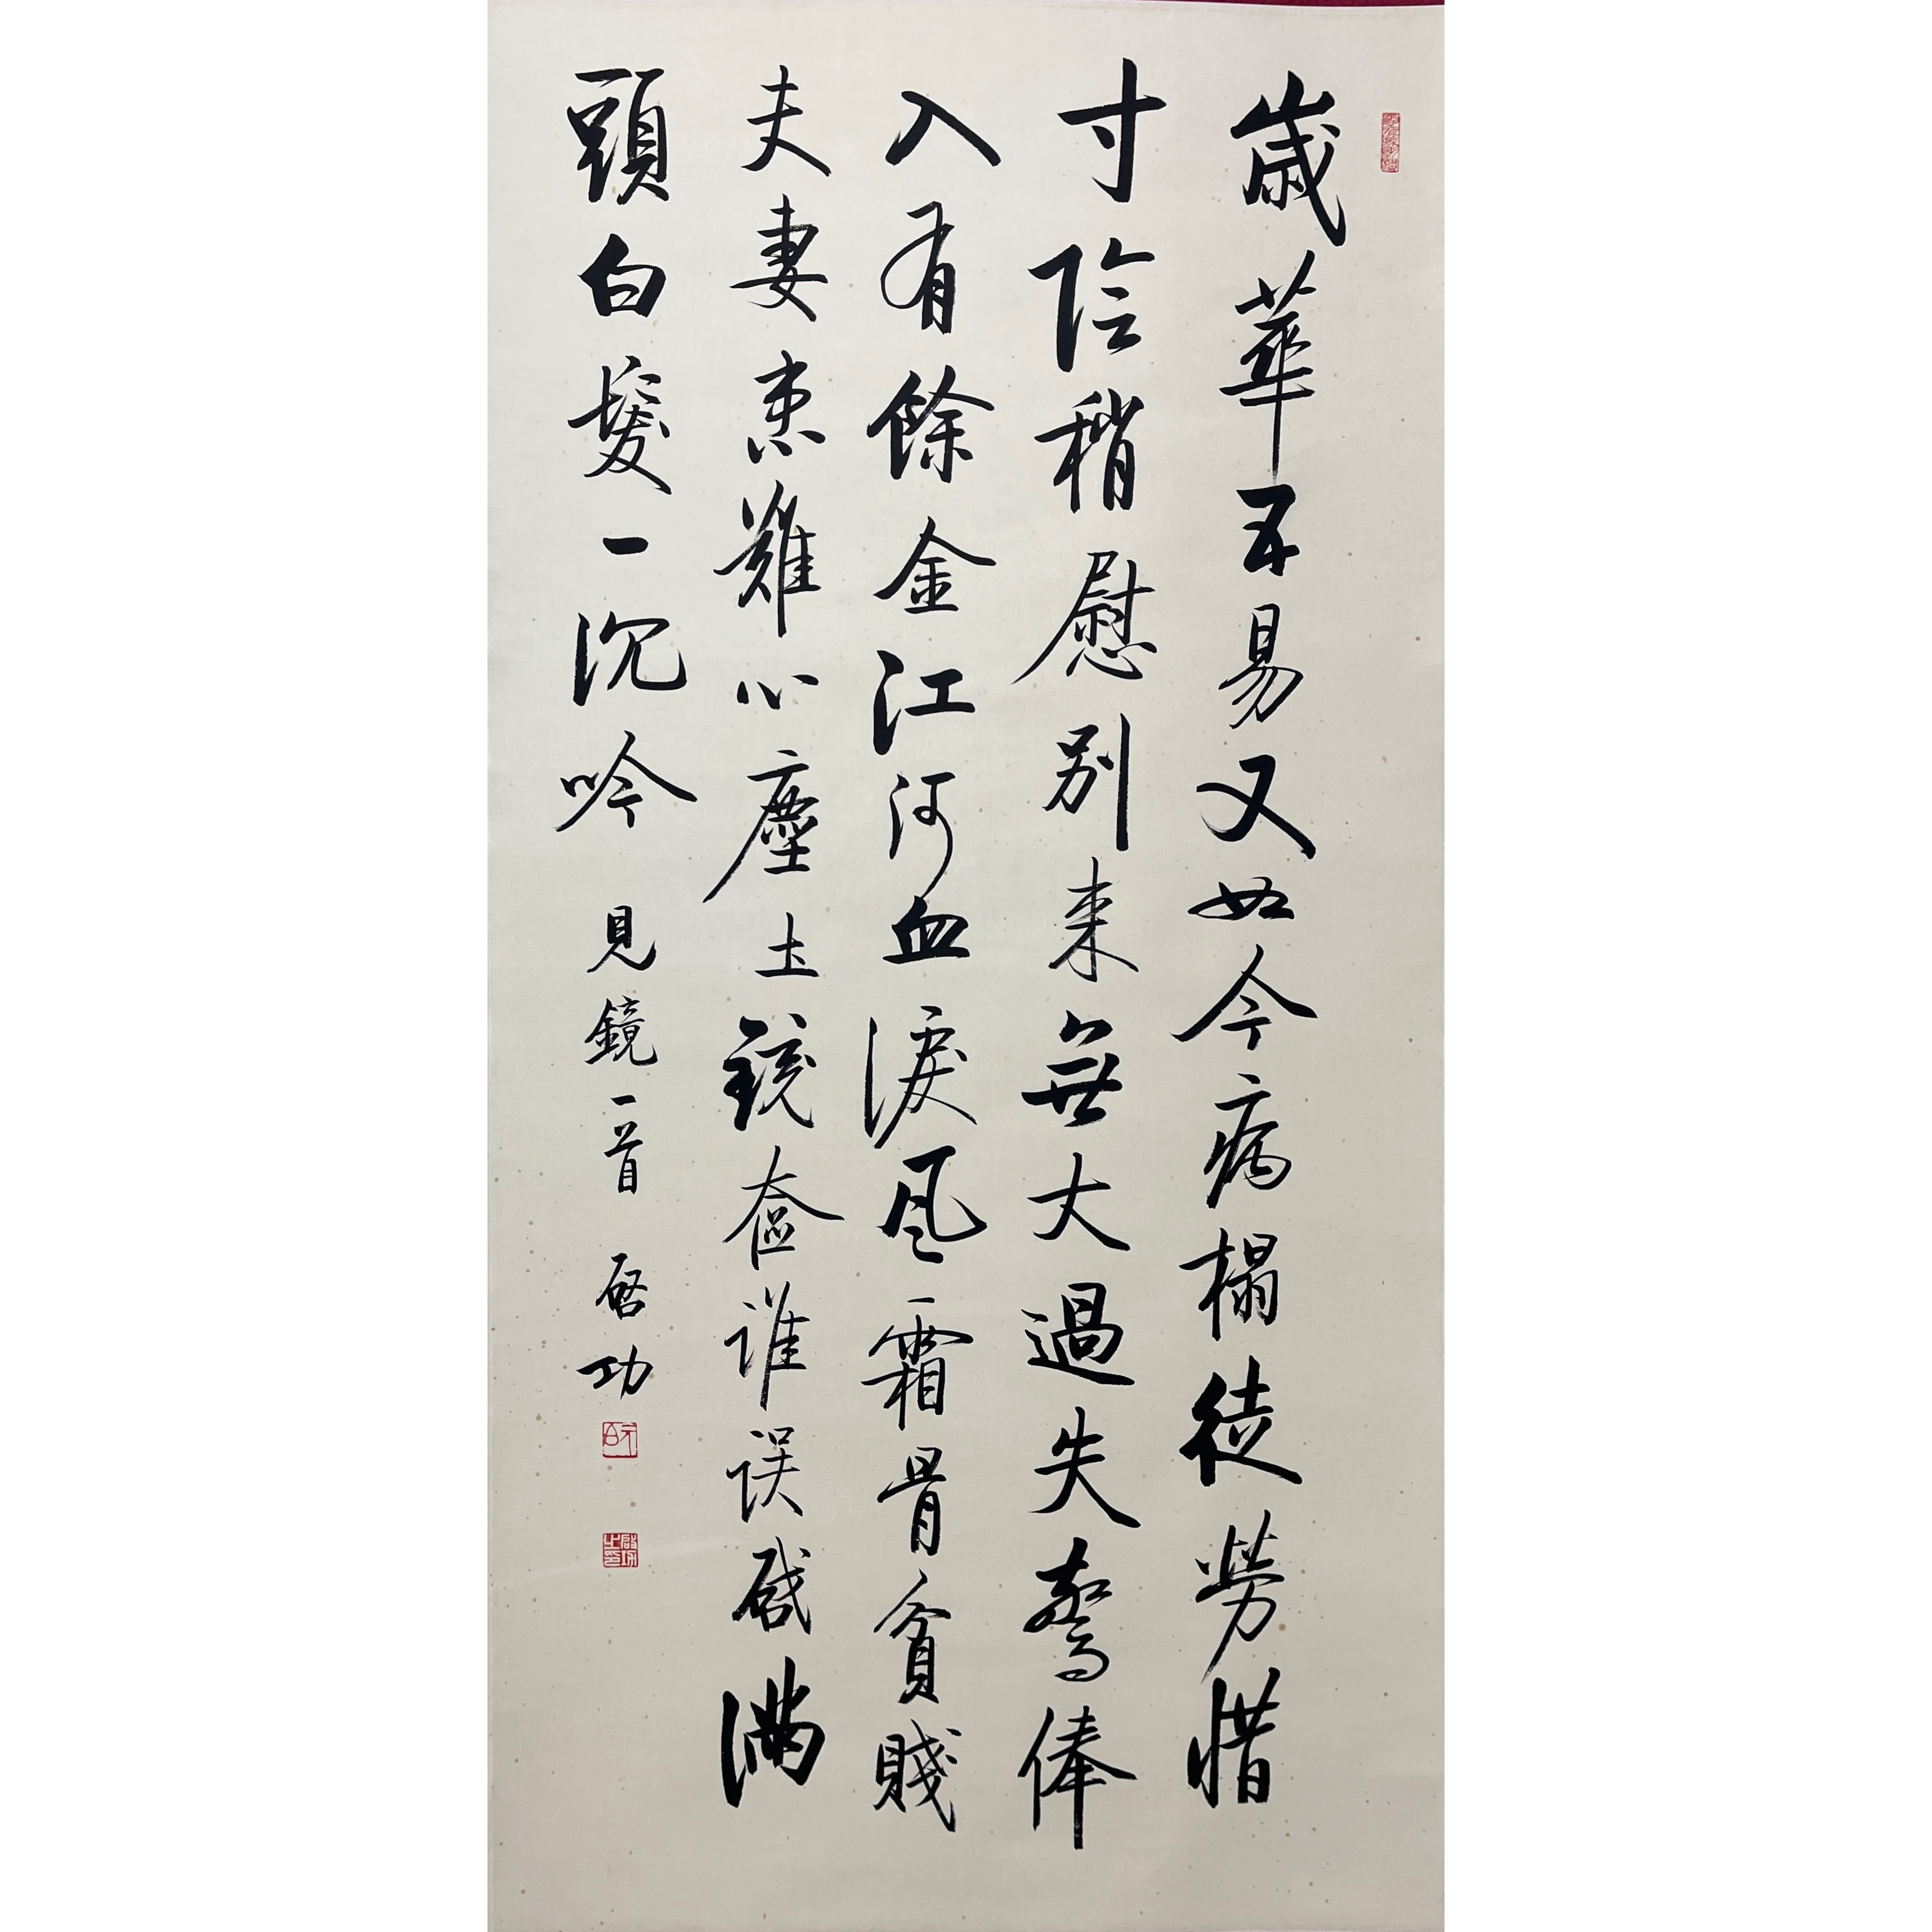 歲華五易又如今病榻徒勞惜
寸陰稍慰別來無大過失驚俸
入有餘金江河血淚風霜骨貧賤
夫妻患難心塵土鏡奩誰誤啟滿
頭白髮一沉吟 見鏡一首 啟功
元白
啟功之印